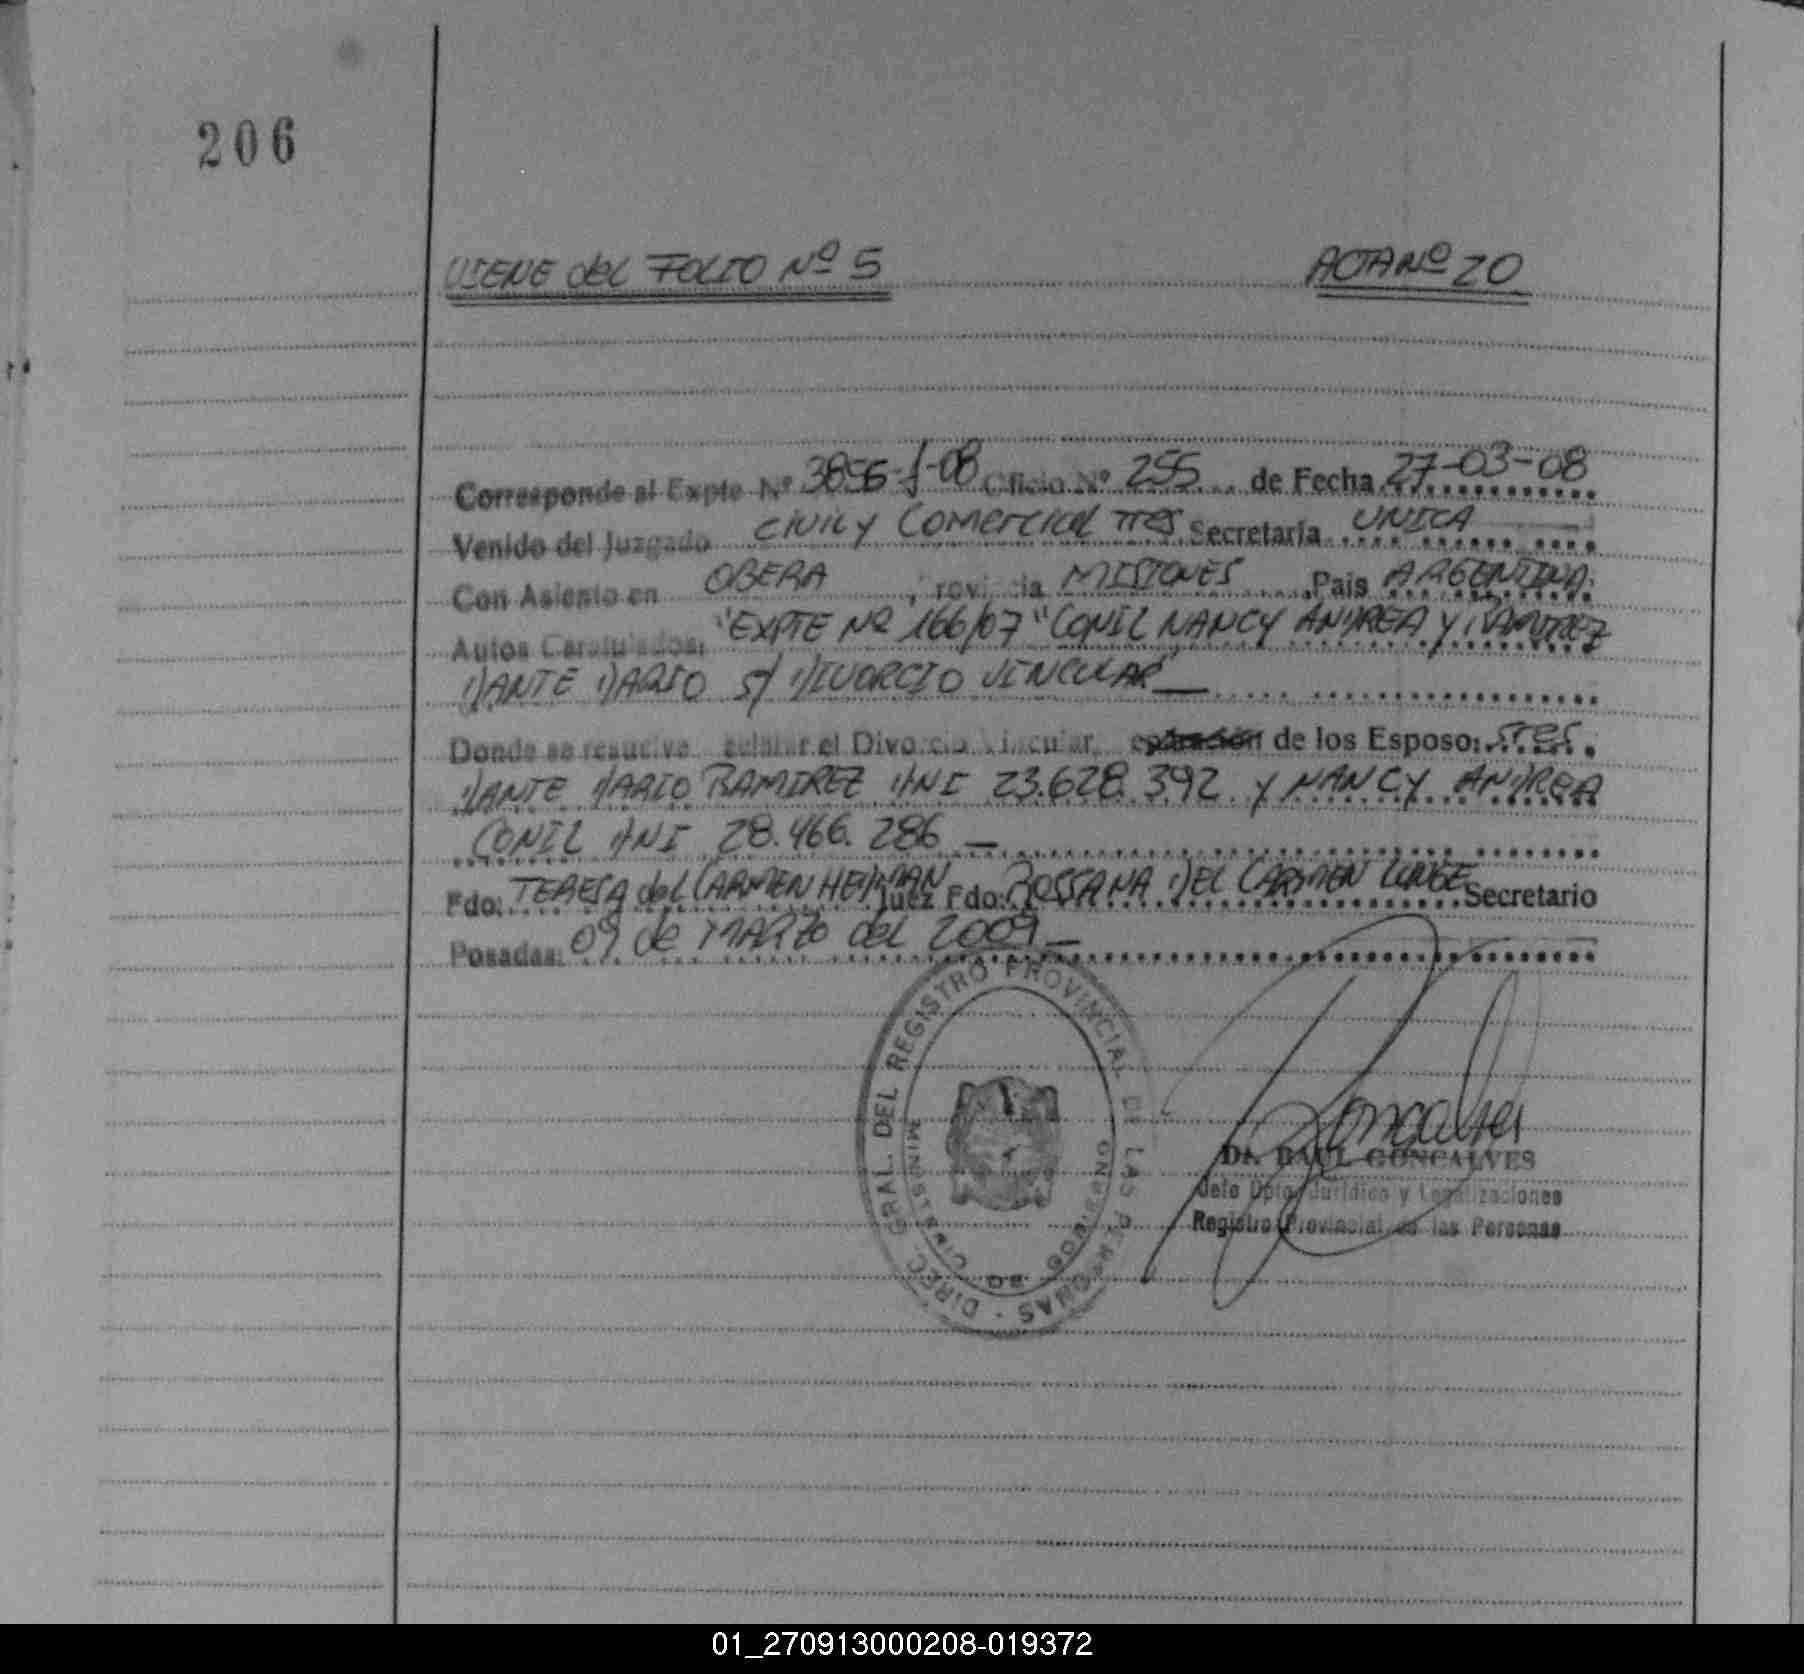 206
VIENE del FOLIO Nº 5 ACTA Nº 20
Corresponde al Expte Nº 3856-J-08 Oficio Nº 255 de Fecha 27-03-08
Venido del Juzgado CIVIL y COMERCIAL TRES Secretaría UNICA
Con Asiento en OBERA, Provincia MISIONES, País ARGENTINA.
Autos Caratulados: "EXPTE Nº 166/07 "CONIL NANCY ANDREA y RAMIREZ
DANTE DARIO S/ DIVORCIO VINCULAR"
Donde se resuelve el Divorcio Vincular, de los Esposo: sres
DANTE DARIO RAMIREZ DNI 23.628.392 y NANCY ANDREA
CONIL DNI 28.466.286
Fdo: TERESA del CARMEN HEDMAN Juez Fdo: ROSSANA DEL CARMEN Secretario
Posadas: 09 de MARZO del 2009
DIREC. GRAL. DEL REGISTRO PROVINCIAL DE LAS PERSONAS
MINISTERIO DE GOBIERNO
Goncalves
Dr. RAUL GONCALVES
Jefe Dpto. Jurídico y Legalizaciones
Registro Provincial de las Personas
01_270913000208-019372